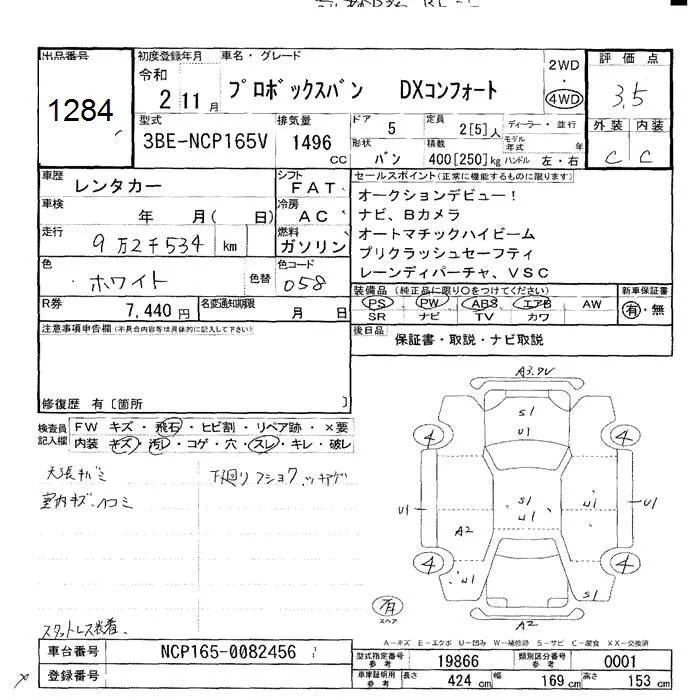 出品番号
1284
初度登録年月
令和
2 11 月
車名・グレード
プロボックスバン DXコンフォート
2WD
・
4WD
評価点
3.5
外装 内装
C C
型式
3BE-NCP165V
排気量
1496
CC
ドア
5
定員
2[5]人
ディーラー・並行
モデル年式 年
形状
バン
積載
400[250]kg
ハンドル 左・右
車歴
レンタカー
シフト
FAT
車検
年 月( 日)
冷房
AC
走行
9万2千534 km
燃料
ガソリン
色
ホワイト
色替
色コード
058
R券
7,440円
名変通知期限
月 日
セールスポイント(正常に機能するものに限ります)
オークションデビュー!
ナビ、Bカメラ
オートマチックハイビーム
プリクラッシュセーフティ
レーンディパーチャ、VSC
装備品 (純正品に限り○をつけてください)
PS PW ABS エアB AW
SR ナビ TV カワ
新車保証書
有・無
注意事項申告欄 (不具合内容等は具体的に記入して下さい)
後日品
保証書・取説・ナビ取説
修復歴 有〔箇所 〕
検査員記入欄
FW キズ・飛石・ヒビ割・リペア跡・×要
内装 キズ・汚レ・コゲ・穴・スレ・キレ・破レ
天張キバミ
室内キズ・ヘコミ
下廻り
スタットレス装着.
A3.ワレ
S1
U1
4 4
U1
S1
U1
U1
U1
A2
4 4
U1
S1
有
スペア
A2
A-キズ E-エクボ U-凹み W-補修跡 S-サビ C-腐食 XX-交換済
車台番号
NCP165-0082456
登録番号
型式指定番号
参考
19866
類別区分番号
参考
0001
車庫証明用
参考
長さ
424 cm
幅
169 cm
高さ
153 cm